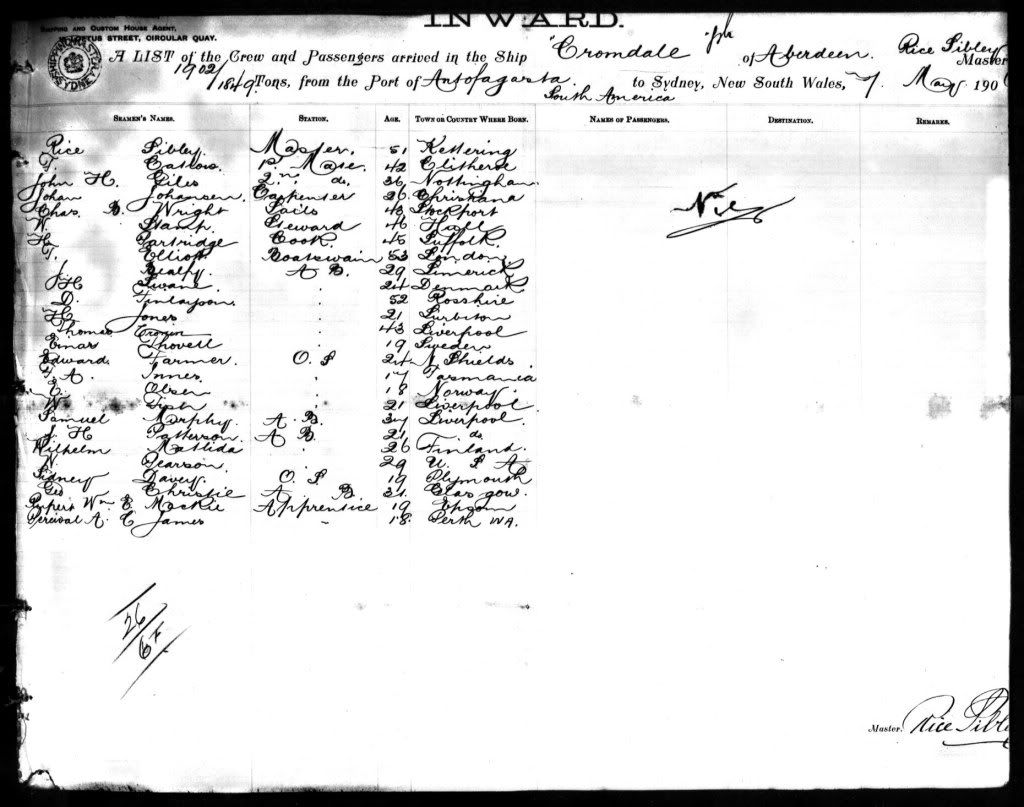 INWARD.
SHIPPING AND CUSTOM HOUSE AGENT,
LOFTUS STREET, CIRCULAR QUAY.
SHIPPING MASTER SYDNEY
A LIST of the Crew and Passengers arrived in the Ship "Cromdale of Aberdeen. Rice Sibley Master
1902/1849 Tons, from the Port of Antofagasta South America to Sydney, New South Wales, 7 May 190
SEAMEN'S NAMES. STATION. AGE. TOWN OR COUNTRY WHERE BORN. NAMES OF PASSENGERS. DESTINATION. REMARKS.
Rice Sibley. Master. 51 Kettering
T. Mate. 42 Clitheroe
John H. Giles 2nd do. 36 Nottingham.
Johan Johansen Carpenter 26 Christiana
Chas. Wright Sails 48 Stockport
W. Stamp. Steward 46 Hull
H. Partridge Cook 45 Suffolk.
T. Elliott Boatswain 53 London
J. Healy. A B. 29 Limerick
J H Swane 24 Denmark
D. Finlayson. 52 Rosshire
H. Jones 21 Surbiton
Thomas Cronin 43 Liverpool
Einar Thovell 19 Sweden
Edward Farmer. O. S 24 N Shields
A. Innes. 17 Tasmania
C. Olsen 18 Norway.
W. Fish 21 Liverpool
Samuel Murphy. A B. 37 Liverpool.
J. H Patterson. A B. 21 do.
Wilhelm Matlida 26 Finland.
W. Pearson. 29 U. S A
Sidney Davey. O. S 19 Plymouth
Geo Christie A B. 31 Glasgow.
Rupert Wm E Mackie Apprentice 19 Epsom
Percival A. C James 18. Perth WA.
Nil
26
Master. Rice Sibl